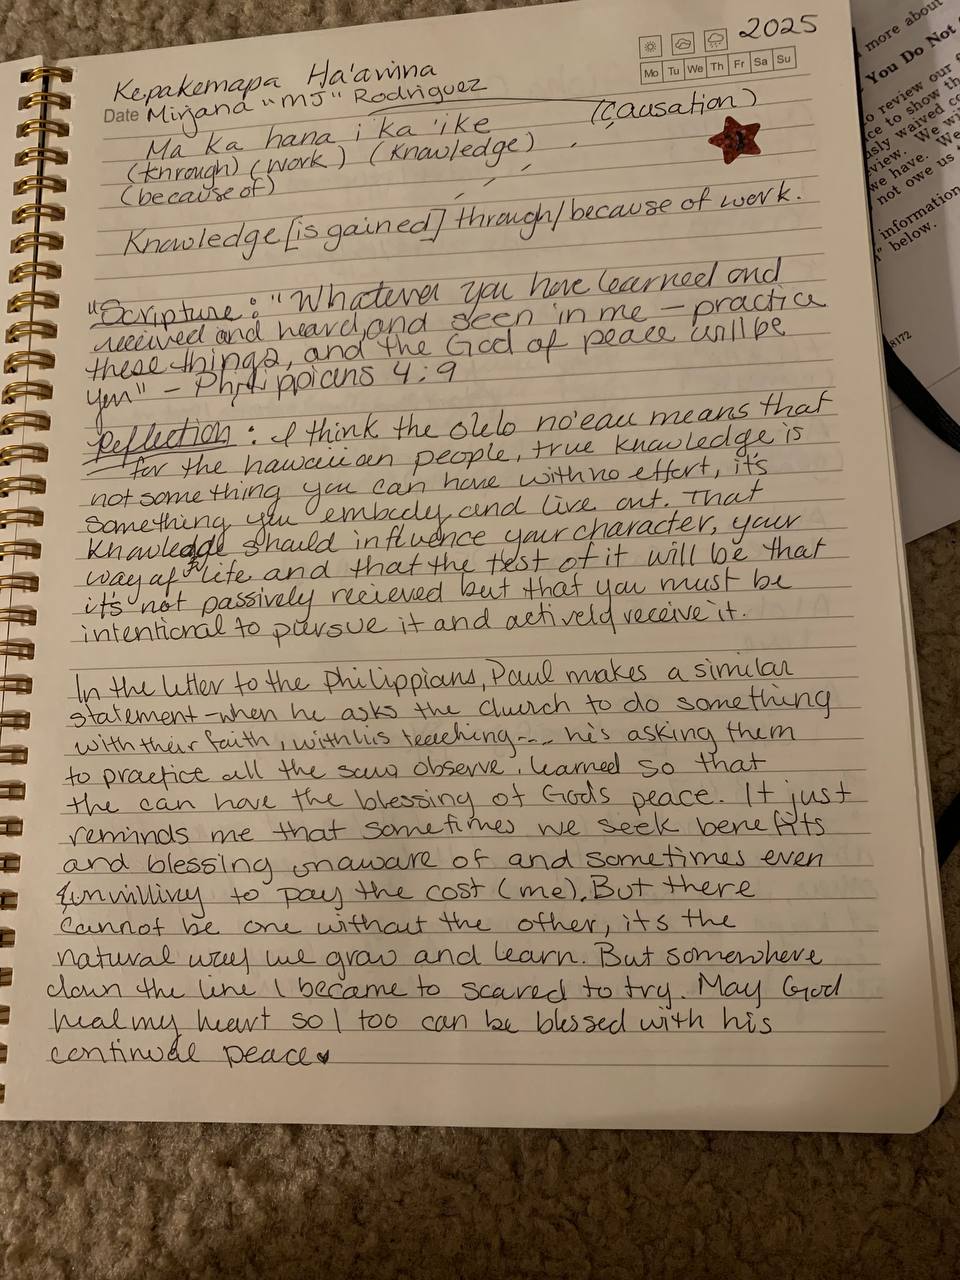 2025
Kepakemapa Ha'awina
Mo Tu We Th Fr Sa Su
Date Mirjana "MJ" Rodriguez
(causation)
Ma ka hana i ka 'ike
(through) (work) (knowledge)
(because of)
Knowledge [is gained] through/because of work.
"Scripture: "Whatever you have learned and
received and heard, and seen in me – practice
these things, and the God of peace will be
you" – Philippians 4:9
Reflection: I think the olelo no'eau means that
for the hawaiian people, true knowledge is
not something you can have with no effort, it's
something you embody and live out. That
knowledge should influence your character, your
way of life and that the test of it will be that
it's not passively recieved but that you must be
intentional to pursue it and actively receive it.
In the letter to the Philippians, Paul makes a similar
statement – when he asks the church to do something
with their faith, with his teaching--- he's asking them
to practice all the saw, observe, learned so that
the can have the blessing of Gods peace. It just
reminds me that sometimes we seek benefits
and blessing unaware of and sometimes even
unwilling to pay the cost (me). But there
cannot be one without the other, it's the
natural way we grow and learn. But somewhere
down the line I became to scared to try. May God
heal my heart so I too can be blessed with his
continual peace♥
more about
You Do Not
to review our
ce to show th
usly waived co
view. We wil
we have. We
not owe us
information
" below.
8172